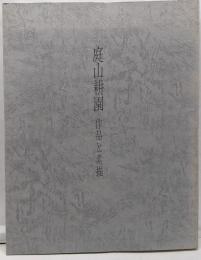 庭山耕園 作品と素描